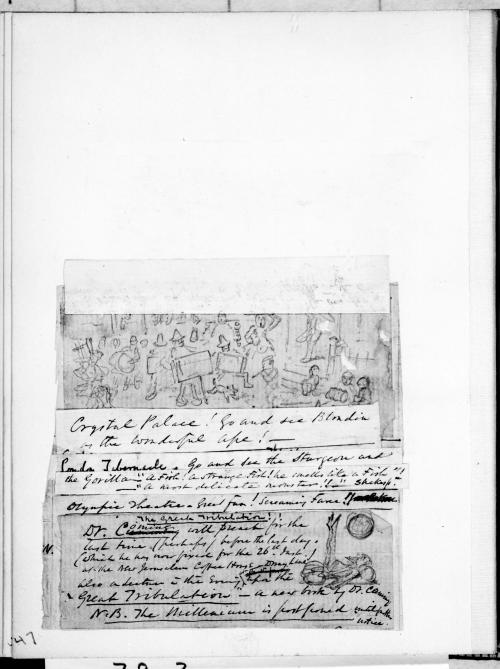 Crystal Palace! Go and see Blondin
as the wonderful ape! —
London Tabernacle. Go and see the Sturgeon and
the Gorilla — "A Fish! A strange Fish! he smells like a Fish"!
"A most delicate monster"!! Shakesp.
Olympic Theatre. Great fun! Screaming Farce!!
The Great Tribulation!
Dr. Cumming will preach for the
last time (perhaps) before the last day.
(which he has now fixed for the 26th Inst.)
at the New Jerusalem Coffee House
also a lecture in the Evening upon the
"Great Tribulation" — a new book by Dr. Cumming
N.B. The Millenium is postponed until further
notice.
N.
47